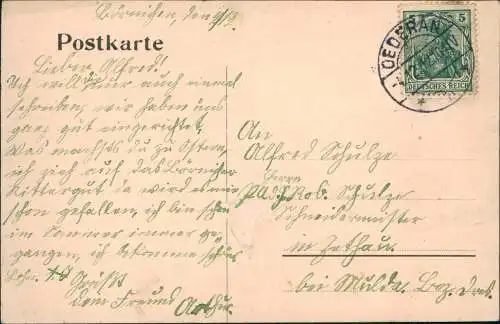 Börnichen, den
Postkarte
Lieber Alfred!
Ich will dir nur auch einmal
schreiben, wir haben uns
ganz gut eingerichtet,
Was machst du zu Ostern,
ich zieh auf das Börnicher
Rittergut da wird es mir
schon gefallen, ich bin schon
im Sommer immer ge-
gangen, ich bekomme schönen
Lohn.
Grüßt
dein Freund Arthur.
5
DEUTSCHES REICH
OEDERAN
An
Alfred Schulze
Herrn
Rob. Schulze
Schneidermeister
in Zethau.
bei Mulda. Bez. Dresd.